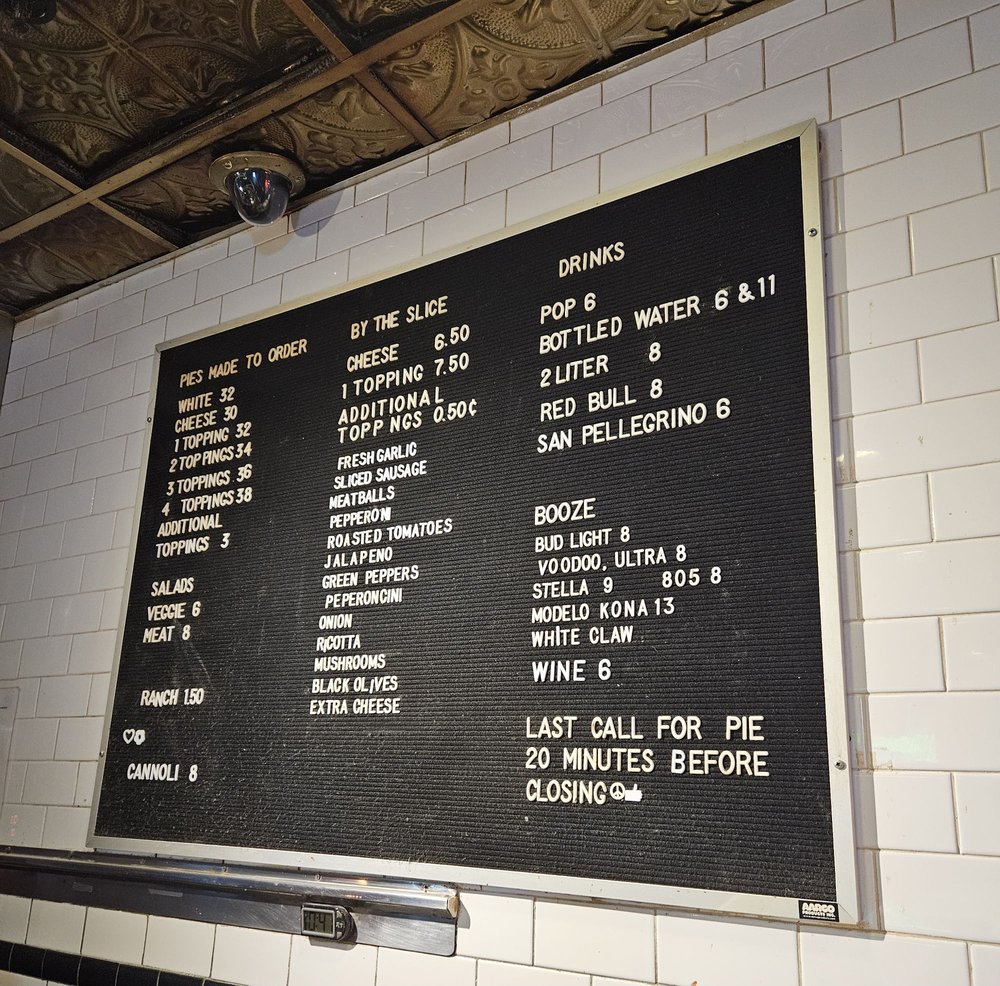 PIES MADE TO ORDER
WHITE 32
CHEESE 30
1 TOPPING 32
2 TOPPINGS 34
3 TOPPINGS 36
4 TOPPINGS 38
ADDITIONAL
TOPPINGS 3
SALADS
VEGGIE 6
MEAT 8
RANCH 1.50
CANNOLI 8
BY THE SLICE
CHEESE 6.50
1 TOPPING 7.50
ADDITIONAL
TOPP NGS 0.50¢
FRESH GARLIC
SLICED SAUSAGE
MEATBALLS
PEPPERONI
ROASTED TOMATOES
JALAPENO
GREEN PEPPERS
PEPERONCINI
ONION
RICOTTA
MUSHROOMS
BLACK OLIVES
EXTRA CHEESE
DRINKS
POP 6
BOTTLED WATER 6 & 11
2 LITER 8
RED BULL 8
SAN PELLEGRINO 6
BOOZE
BUD LIGHT 8
VOODOO, ULTRA 8
STELLA 9 805 8
MODELO KONA 13
WHITE CLAW
WINE 6
LAST CALL FOR PIE
20 MINUTES BEFORE
CLOSING
AARCO
PRODUCTS INC.